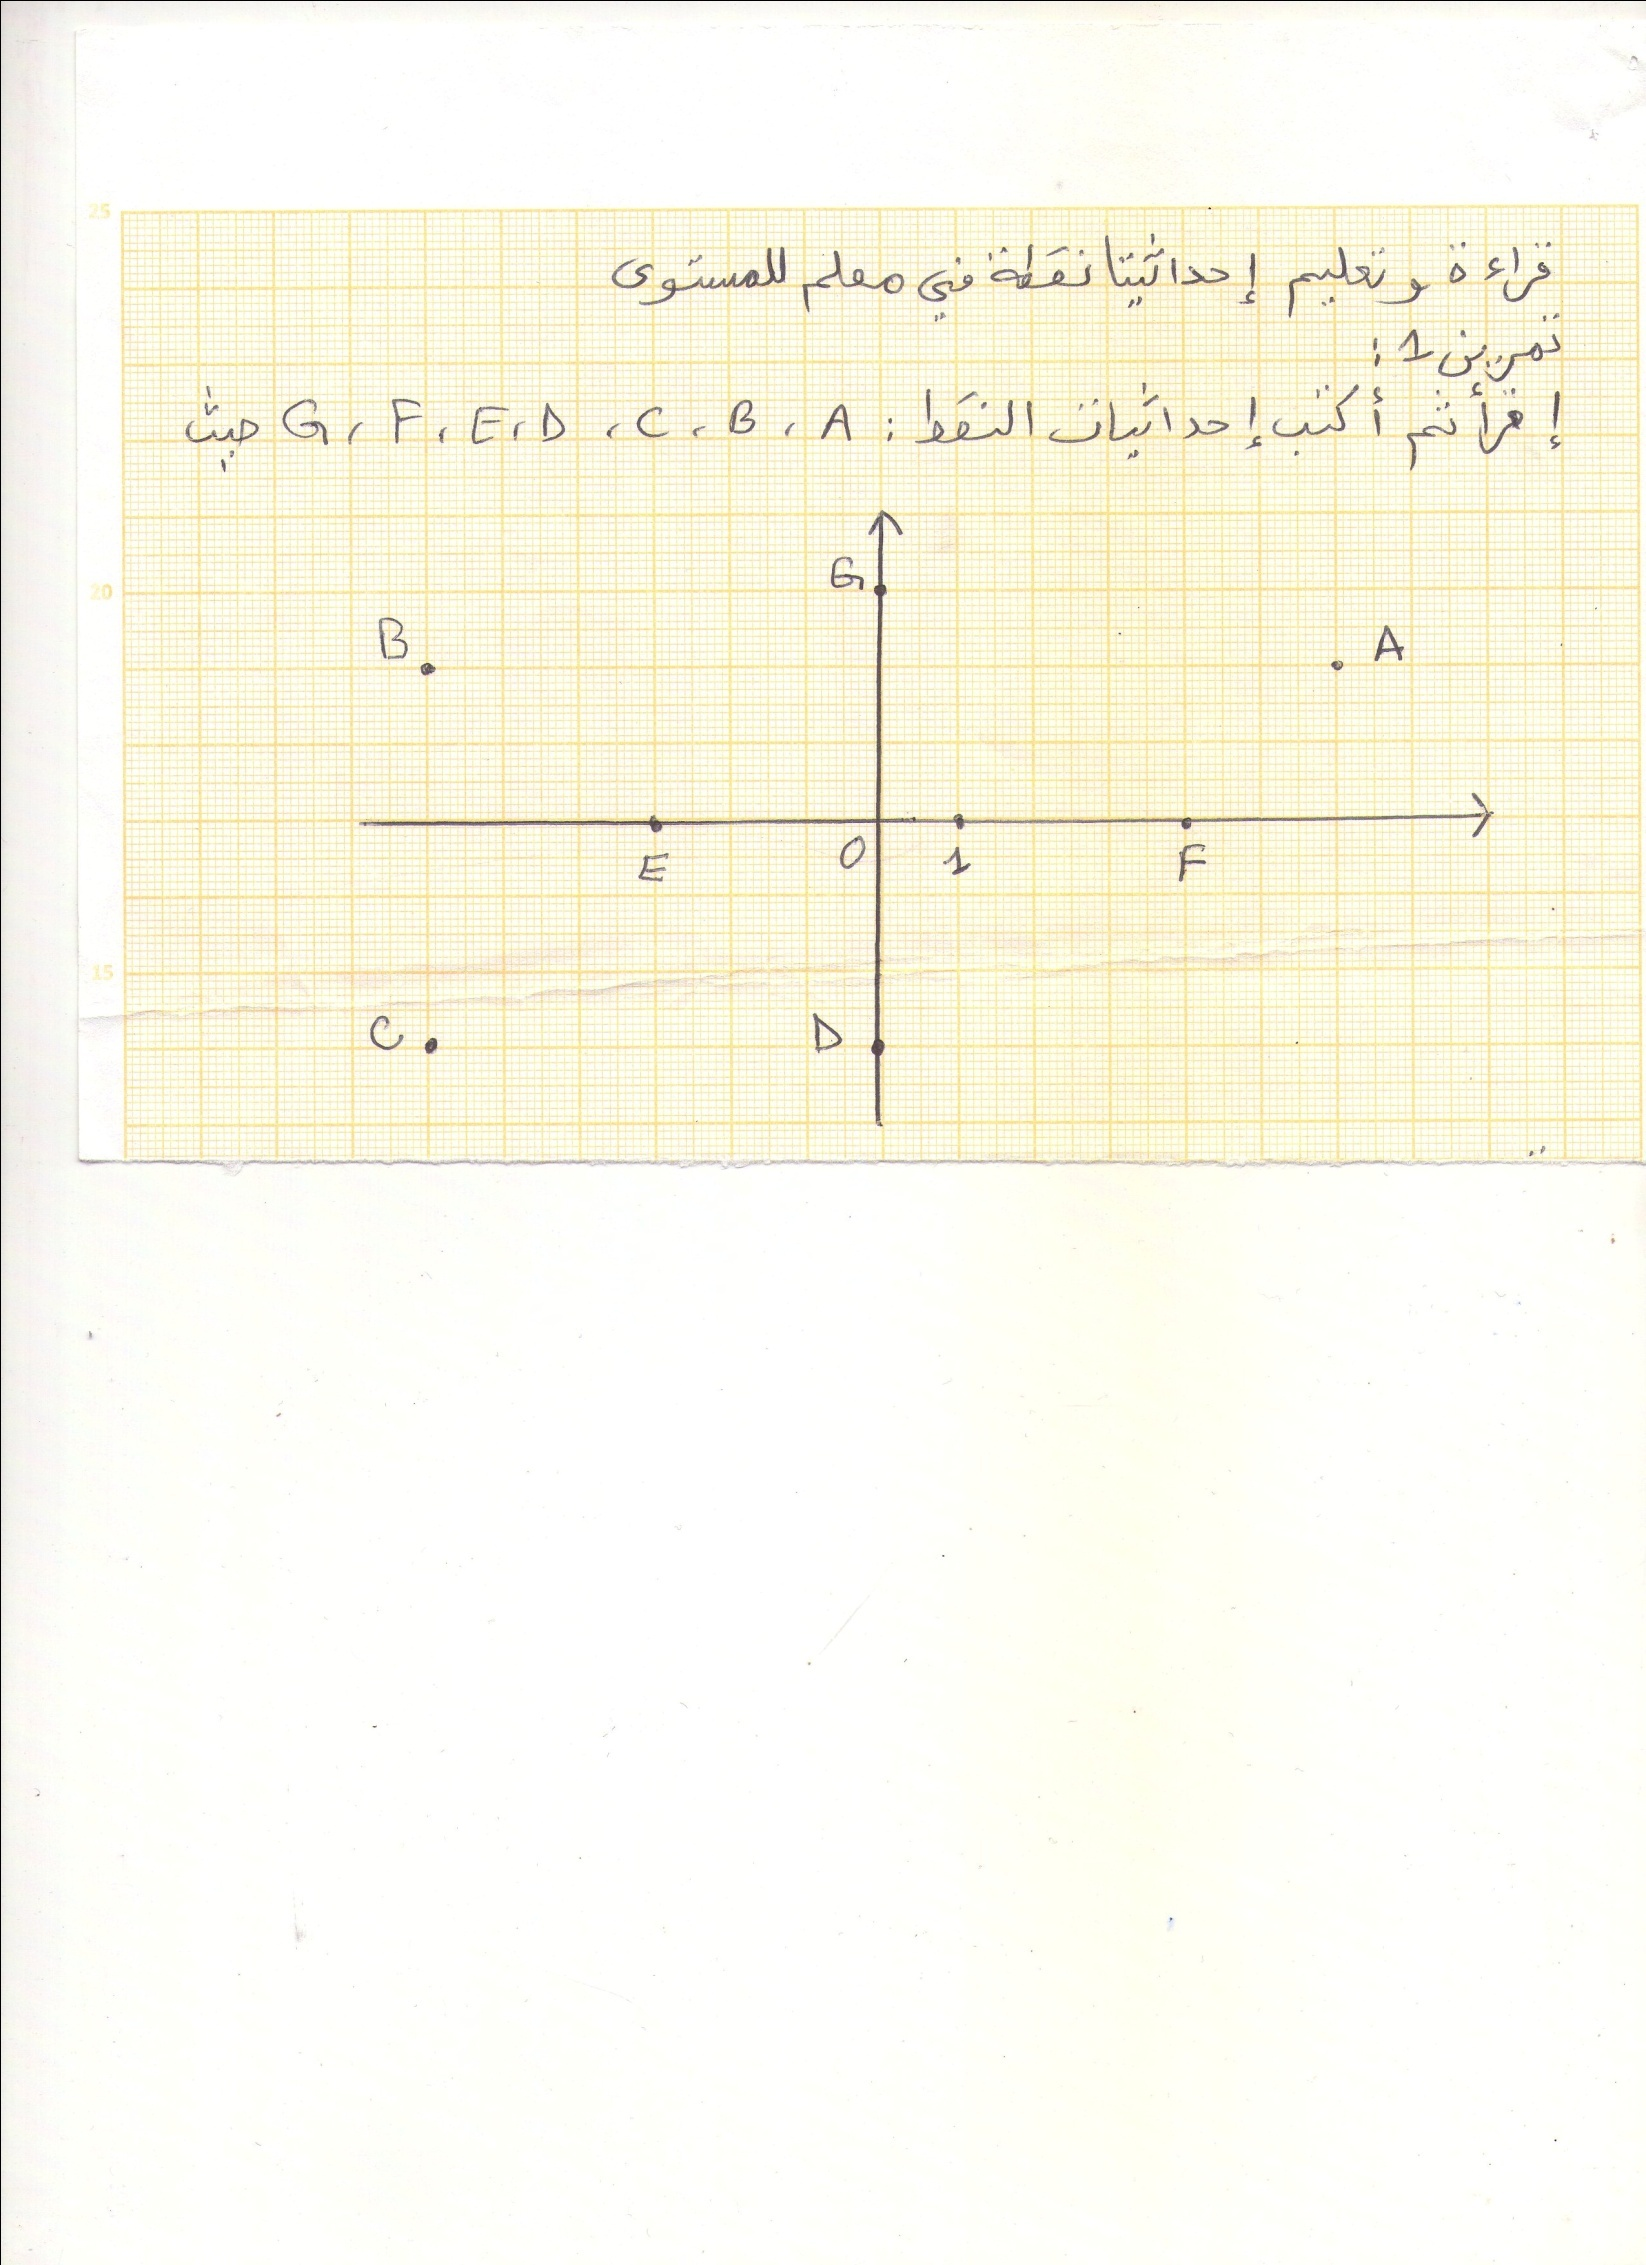 25
قراءة و تعليم إحداثيتا نقطة في معلم للمستوى
تمرين 1 :
إقرأ ثم أكتب إحداثيات النقط : A ، B ، C ، D ، E ، F ، G حيث
G
20
B
A
E
O
1
F
15
C
D